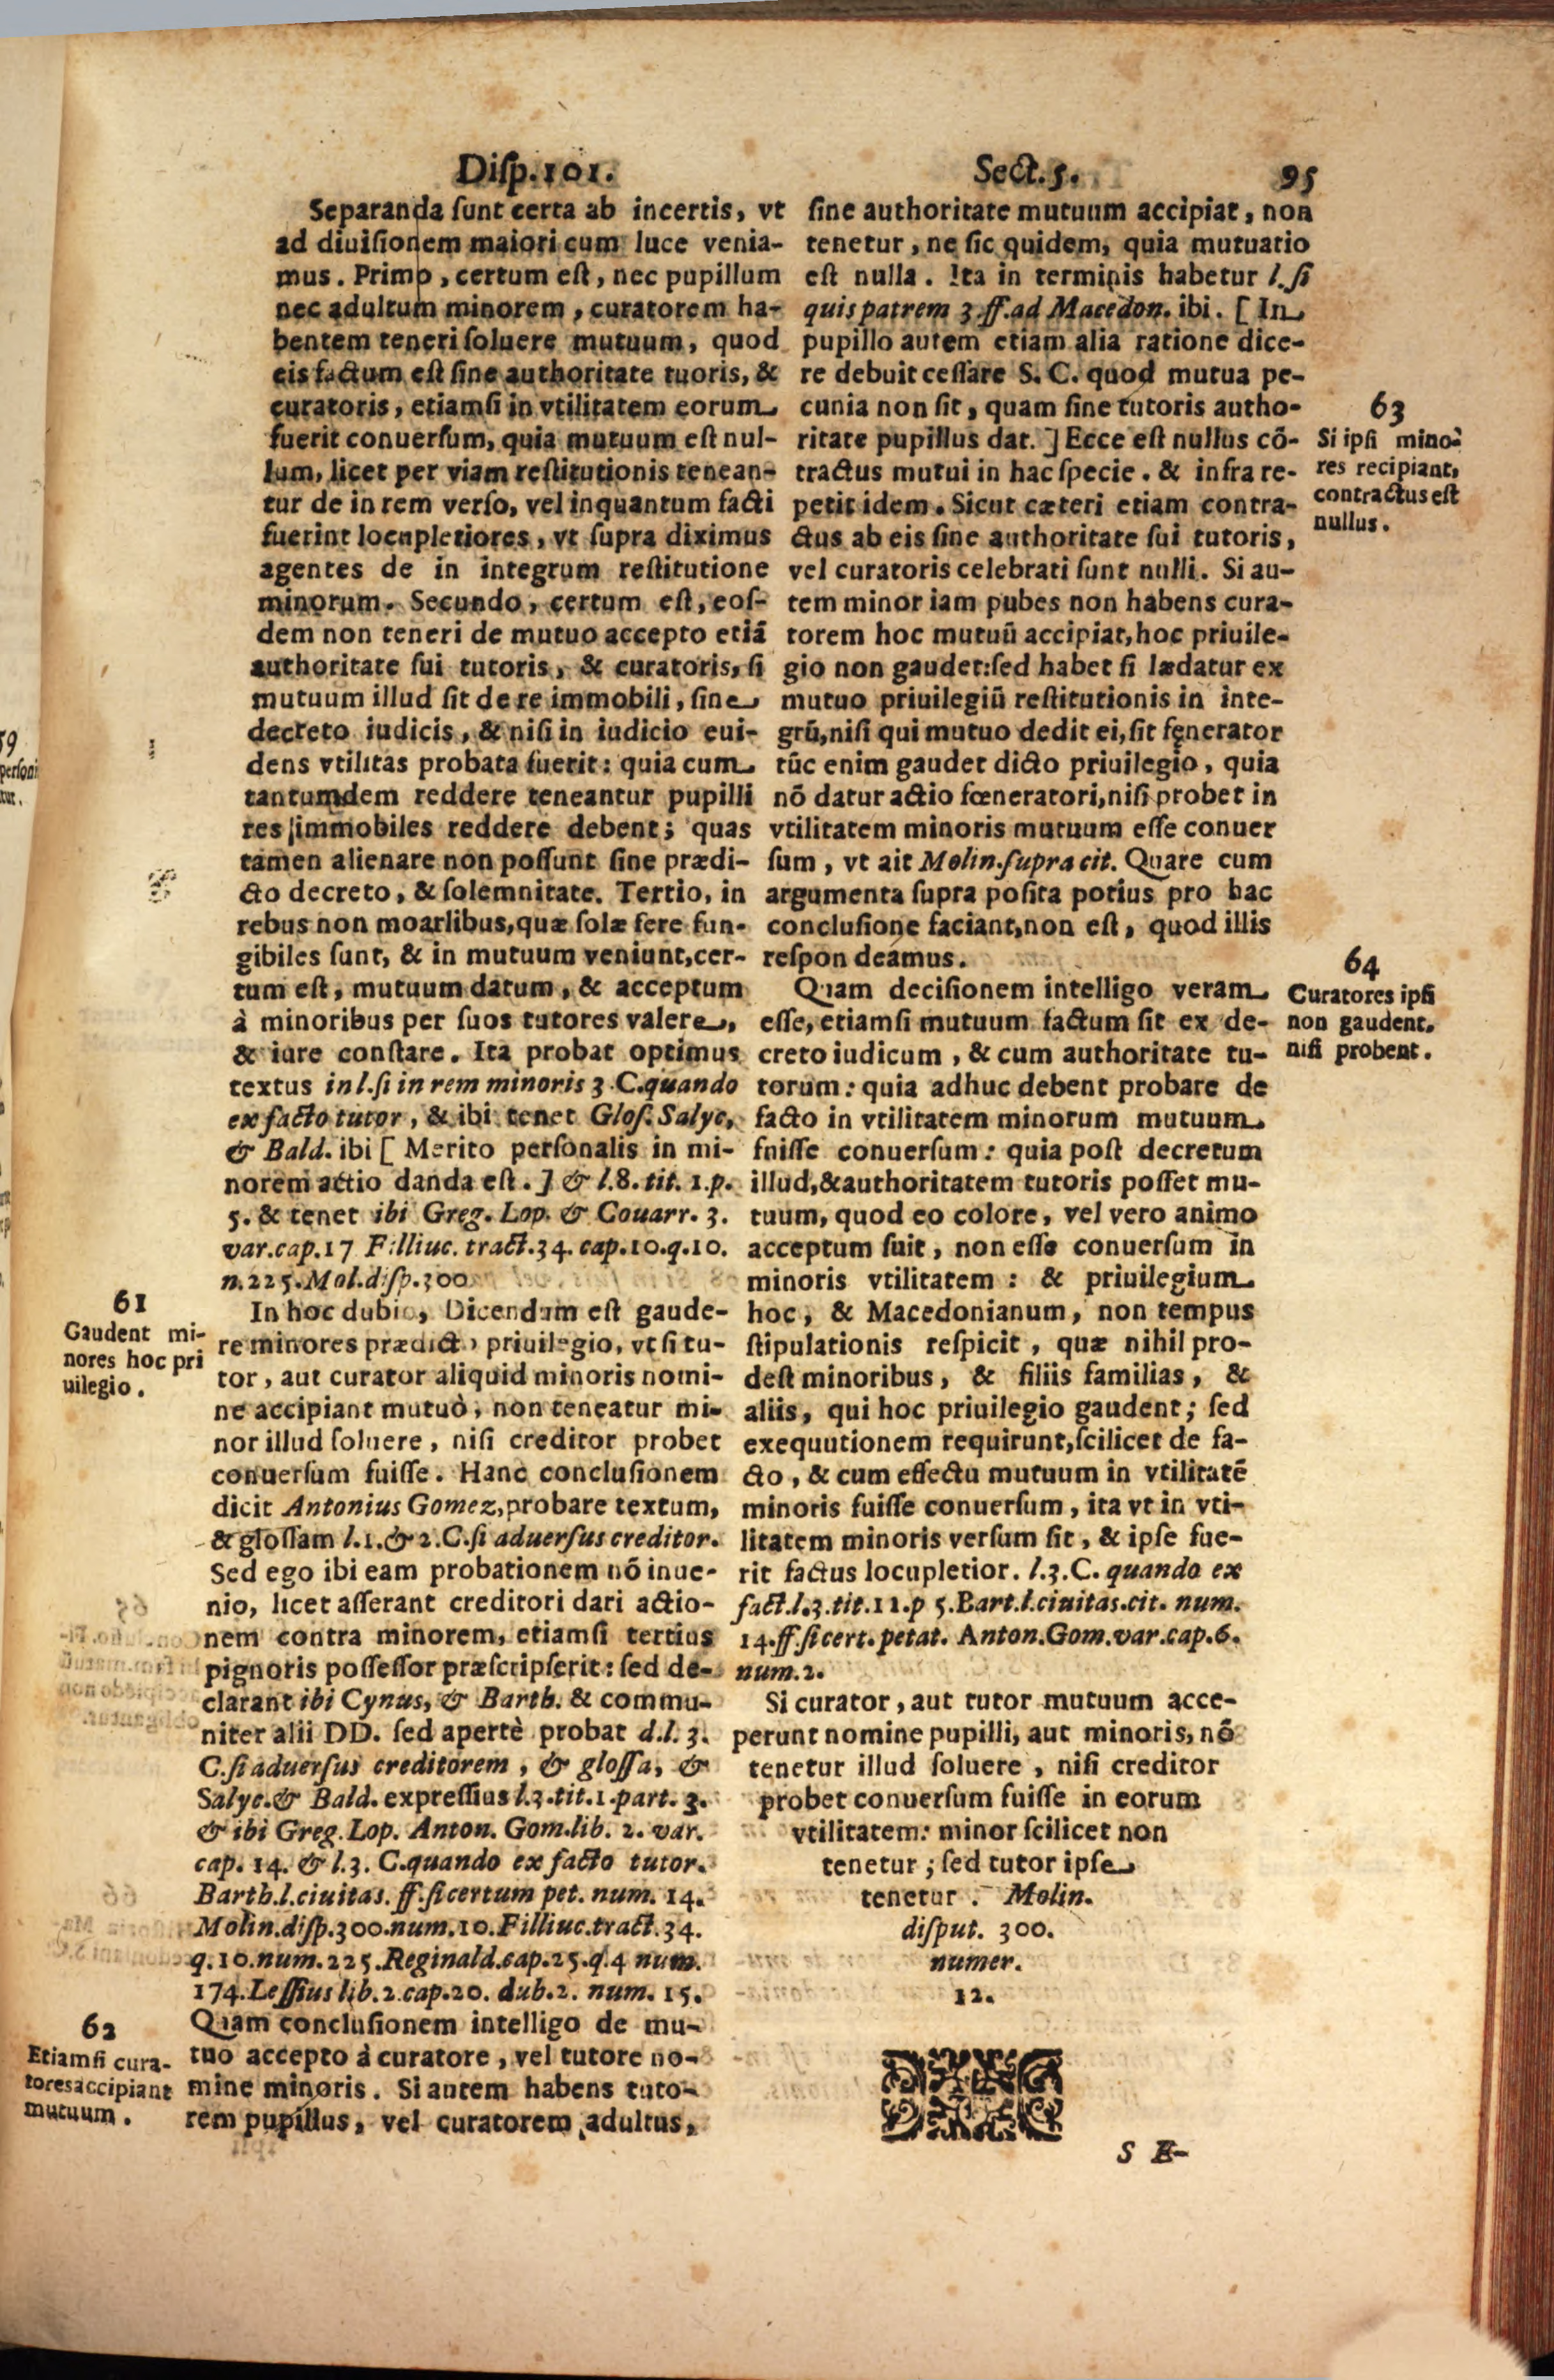 Disp.101. Sect.5. 95
Separanda sunt certa ab incertis, vt
ad diuisionem maiori cum luce venia-
mus. Primo, certum est, nec pupillum
nec adultum minorem, curatorem ha-
bentem teneri soluere mutuum, quod
eis factum est sine authoritate tuoris, &
curatoris, etiamsi in vtilitatem eorum
fuerit conuersum, quia mutuum est nul-
lum, licet per viam restitutionis tenean-
tur de in rem verso, vel inquantum facti
fuerint locupletiores, vt supra diximus
agentes de in integrum restitutione
minorum. Secundo, certum est, eos-
dem non teneri de mutuo accepto etiā
authoritate sui tutoris, & curatoris, si
mutuum illud sit de re immobili, sine
decreto iudicis, & nisi in iudicio eui-
dens vtilitas probata fuerit: quia cum
tantumdem reddere teneantur pupilli
res immobiles reddere debent; quas
tamen alienare non possunt sine prædi-
cto decreto, & solemnitate. Tertio, in
rebus non moarlibus, quæ solæ fere fun-
gibiles sunt, & in mutuum veniunt, cer-
tum est, mutuum datum, & acceptum
à minoribus per suos tutores valere,
& iure constare. Ita probat optimus
textus in l. si in rem minoris 3 C. quando
ex facto tutor, & ibi tenet Glos. Salyc,
& Bald. ibi [ Merito personalis in mi-
norem actio danda est. ] & l.8. tit. 1.p.
5. & tenet ibi Greg. Lop. & Couarr. 3.
var.cap.17 Filliuc. tract.34. cap.10.q.10.
n.225. Mol. disp.300
61
Gaudent mi-
nores hoc pri
uilegio.
In hoc dubio, Dicendum est gaude-
re minores prædicto priuilegio, vt si tu-
tor, aut curator aliquid minoris nomi-
ne accipiant mutuò, non teneatur mi-
nor illud soluere, nisi creditor probet
conuersum fuisse. Hanc conclusionem
dicit Antonius Gomez, probare textum,
& glossam l.1. & 2. C. si aduersus creditor.
Sed ego ibi eam probationem nō inue-
nio, licet asserant creditori dari actio-
nem contra minorem, etiamsi tertius
pignoris possessor præscripserit: sed de-
clarant ibi Cynus, & Barth. & commu-
niter alii DD. sed apertè probat d.l. 3.
C. si aduersus creditorem, & glossa, &
Salyc. & Bald. expressius l.3. tit.1. part. 3.
& ibi Greg. Lop. Anton. Gom. lib. 2. var.
cap. 14. & l.3. C. quando ex facto tutor.
Barth. l. ciuitas. ff. si certum pet. num. 14.
Molin. disp.300. num.10. Filliuc. tract.34.
q.10. num.225. Reginald. cap.25.q.4 num.
174. Lessius lib.2.cap.20. dub.2. num. 15.
62
Etiamsi cura-
tores accipiant
mutuum.
Quam conclusionem intelligo de mu-
tuo accepto à curatore, vel tutore no-
mine minoris. Si autem habens tuto-
rem pupillus, vel curatorem adultus,
sine authoritate mutuum accipiat, non
tenetur, ne sic quidem, quia mutuatio
est nulla. Ita in terminis habetur l. si
quis patrem 3. ff. ad Macedon. ibi. [ In
pupillo autem etiam alia ratione dice-
re debuit cessare S. C. quod mutua pe-
cunia non sit, quam sine tutoris autho-
ritate pupillus dat. ] Ecce est nullus cō-
tractus mutui in hac specie. & infra re-
petit idem. Sicut cæteri etiam contra-
ctus ab eis sine authoritate sui tutoris,
vel curatoris celebrati sunt nulli. Si au-
tem minor iam pubes non habens cura-
torem hoc mutuū accipiat, hoc priuile-
gio non gaudet: sed habet si lædatur ex
mutuo priuilegiū restitutionis in inte-
grū, nisi qui mutuo dedit ei, sit fęnerator
tūc enim gaudet dicto priuilegio, quia
nō datur actio fœneratori, nisi probet in
vtilitatem minoris mutuum esse conuer
sum, vt ait Molin. supra cit. Quare cum
argumenta supra posita potius pro hac
conclusione faciant, non est, quod illis
respon deamus.
63
Si ipsi mino-
res recipiant,
contractus est
nullus.
Quam decisionem intelligo veram
esse, etiamsi mutuum factum sit ex de-
creto iudicum, & cum authoritate tu-
torum: quia adhuc debent probare de
facto in vtilitatem minorum mutuum
fnisse conuersum: quia post decretum
illud, & authoritatem tutoris posset mu-
tuum, quod eo colore, vel vero animo
acceptum fuit, non esse conuersum in
minoris vtilitatem: & priuilegium
hoc, & Macedonianum, non tempus
stipulationis respicit, quæ nihil pro-
dest minoribus, & filiis familias, &
aliis, qui hoc priuilegio gaudent; sed
exequutionem requirunt, scilicet de fa-
cto, & cum effectu mutuum in vtilitatē
minoris fuisse conuersum, ita vt in vti-
litatem minoris versum sit, & ipse fue-
rit factus locupletior. l.3.C. quando ex
fact.l.3.tit.11.p 5. Bart.l.ciuitas.cit. num.
14. ff. si cert. petat. Anton. Gom. var. cap.6.
num.2.
64
Curatores ipsi
non gaudent,
nisi probent.
Si curator, aut tutor mutuum acce-
perunt nomine pupilli, aut minoris, nō
tenetur illud soluere, nisi creditor
probet conuersum fuisse in eorum
vtilitatem: minor scilicet non
tenetur; sed tutor ipse
tenetur. Molin.
disput. 300.
numer.
12.
S E-